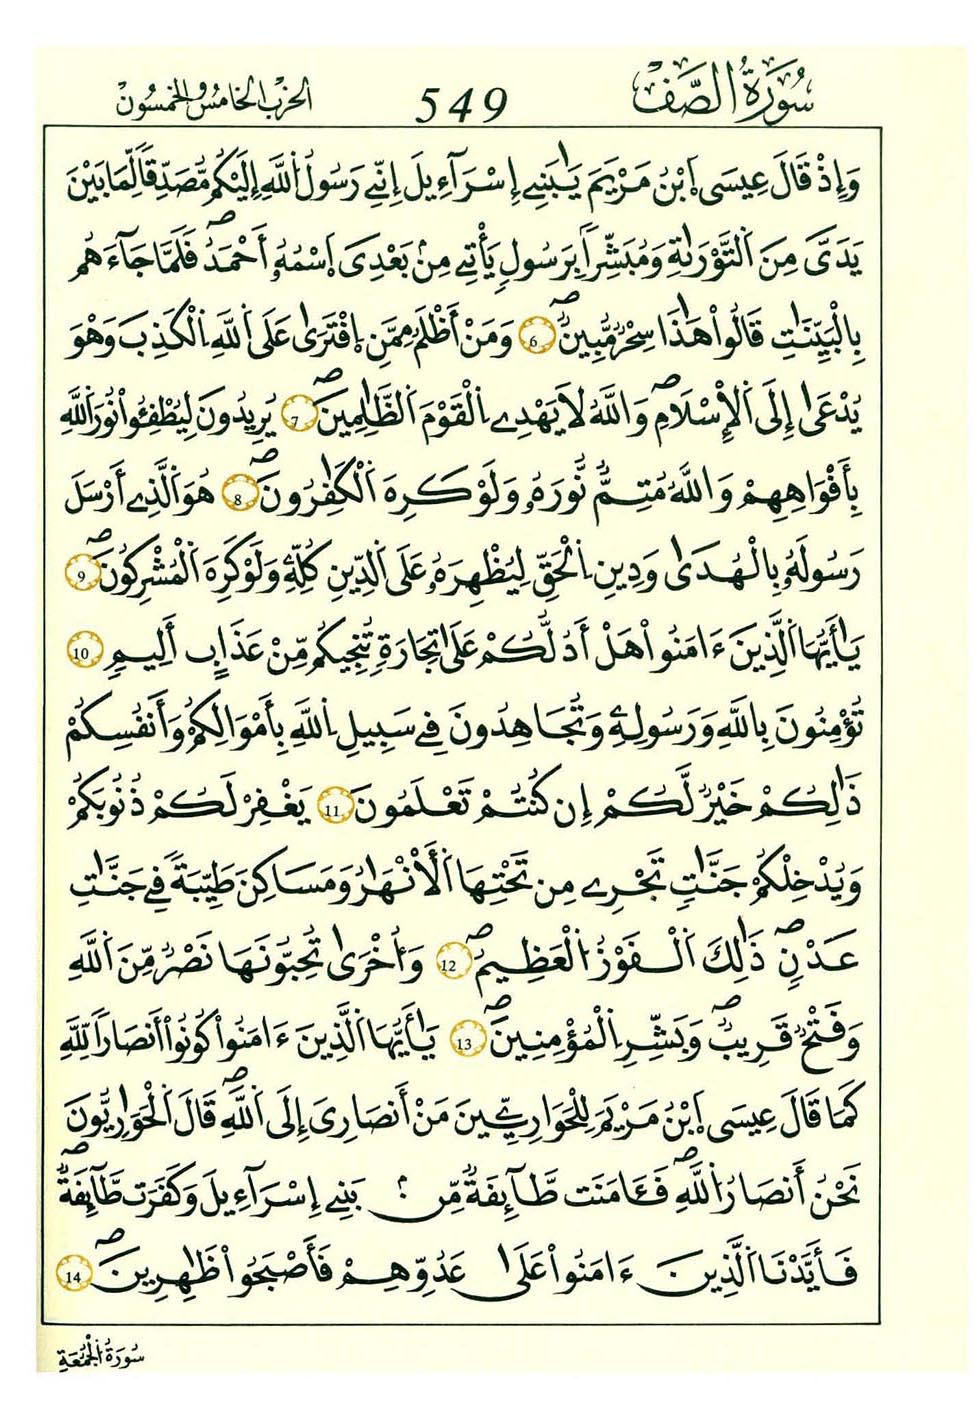 سُورَةُ الصَّفِّ
549
الحزب الخامس والخمسون
وَإِذْ قَالَ عِيسَى اَبْنُ مَرْيَمَ يَٰبَنِےٓ إِسْرَآءِيلَ إِنِّے رَسُولُ اُللَّهِ إِلَيْكُم مُّصَدِّقاً لِّمَا بَيْنَ
يَدَىَّ مِنَ اَلتَّوْرَىٰةِ وَمُبَشِّراَۢ بِرَسُولٍ يَأْتِے مِنۢ بَعْدِىَ اَسْمُهُۥٓ أَحْمَدُۖ فَلَمَّا جَآءَهُم
بِالْبَيِّنَٰتِ قَالُواْ هَٰذَا سِحْرٌ مُّبِينٌۖ 6 وَمَنْ أَظْلَمُ مِمَّنِ اِفْتَرَىٰ عَلَى اَللَّهِ اِلْكَذِبَ وَهْوَ
يُدْعَىٰٓ إِلَى اَلْإِسْلَٰمِۖ وَاللَّهُ لَا يَهْدِے اِلْقَوْمَ اَلظَّٰلِمِينَۖ 7 يُرِيدُونَ لِيُطْفِـُٔواْ نُورَ اَللَّهِ
بِأَفْوَٰهِهِمْ وَاللَّهُ مُتِمٌّ نُّورَهُۥ وَلَوْ كَرِهَ اَلْكَٰفِرُونَۖ 8 هُوَ اَلَّذِےٓ أَرْسَلَ
رَسُولَهُۥ بِالْهُدَىٰ وَدِينِ اِلْحَقِّ لِيُظْهِرَهُۥ عَلَى اَلدِّينِ كُلِّهِۦ وَلَوْ كَرِهَ اَلْمُشْرِكُونَۖ 9
يَٰٓأَيُّهَا اَلَّذِينَ ءَامَنُواْ هَلْ أَدُلُّكُمْ عَلَىٰ تِجَٰرَةٍ تُنجِيكُم مِّنْ عَذَابٍ أَلِيمٍ 10
تُؤْمِنُونَ بِاللَّهِ وَرَسُولِهِۦ وَتُجَٰهِدُونَ فِے سَبِيلِ اِللَّهِ بِأَمْوَٰلِكُمْ وَأَنفُسِكُمْ
ذَٰلِكُمْ خَيْرٌ لَّكُمْ إِن كُنتُمْ تَعْلَمُونَۖ 11 يَغْفِرْ لَكُمْ ذُنُوبَكُمْ
وَيُدْخِلْكُمْ جَنَّٰتٍ تَجْرِے مِن تَحْتِهَا اَلْأَنْهَٰرُ وَمَسَٰكِنَ طَيِّبَةً فِے جَنَّٰتِ
عَدْنٍۖ ذَٰلِكَ اَلْفَوْزُ اُلْعَظِيمُۖ 12 وَأُخْرَىٰ تُحِبُّونَهَا نَصْرٌ مِّنَ اَللَّهِ
وَفَتْحٌ قَرِيبٌۖ وَبَشِّرِ اِلْمُؤْمِنِينَۖ 13 يَٰٓأَيُّهَا اَلَّذِينَ ءَامَنُواْ كُونُوٓاْ أَنصَاراً لِّلَّهِ
كَمَا قَالَ عِيسَى اَبْنُ مَرْيَمَ لِلْحَوَارِيِّـۧنَ مَنْ أَنصَارِىَ إِلَى اَللَّهِۖ قَالَ اَلْحَوَارِيُّونَ
نَحْنُ أَنصَارُ اُللَّهِۖ فَـَٔامَنَت طَّآئِفَةٌ مِّنۢ بَنِےٓ إِسْرَآءِيلَ وَكَفَرَت طَّآئِفَةٌۖ
فَأَيَّدْنَا اَلَّذِينَ ءَامَنُواْ عَلَىٰ عَدُوِّهِمْ فَأَصْبَحُواْ ظَٰهِرِينَۖ 14
سُورَةُ الْجُمُعَةِ